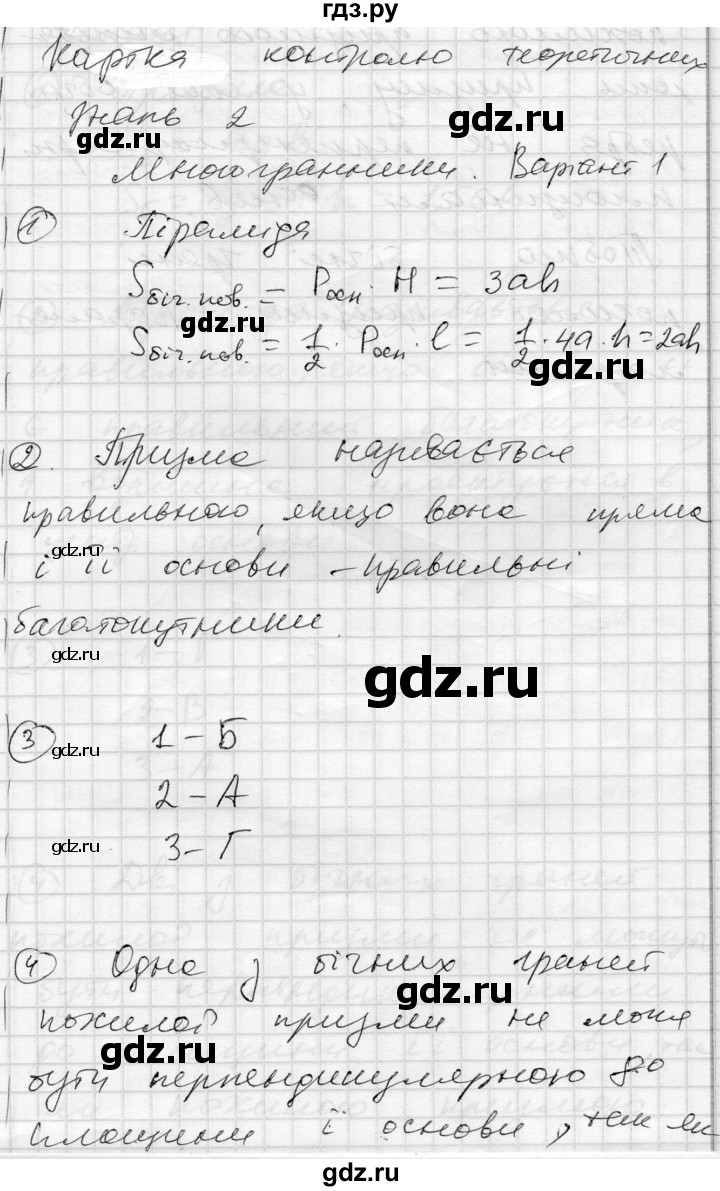 гдз.ру
Картка контролю теоретичних
знань 2
gdz.ru gdz.ru
Многогранники. Варіант 1
1 Піраміда
Sбіч.пов. = Pосн. H = 3ah
gdz.ru
Sбіч.пов. = 1/2 · Pосн · l = 1/2 · 4a · h = 2ah
gdz.ru
2. Призма називається
правильною, якщо вона пряма
gdz.ru
і її основи – правильні
багатокутники.
gdz.ru
gdz.ru
3 1 – Б
gdz.ru
2 – А
3 – Г
gdz.ru
4 Одна з бічних граней
gdz.ru
похилой призми не може
gdz.ru
бути перпендикулярною до
площини її основи, так як
gdz.ru